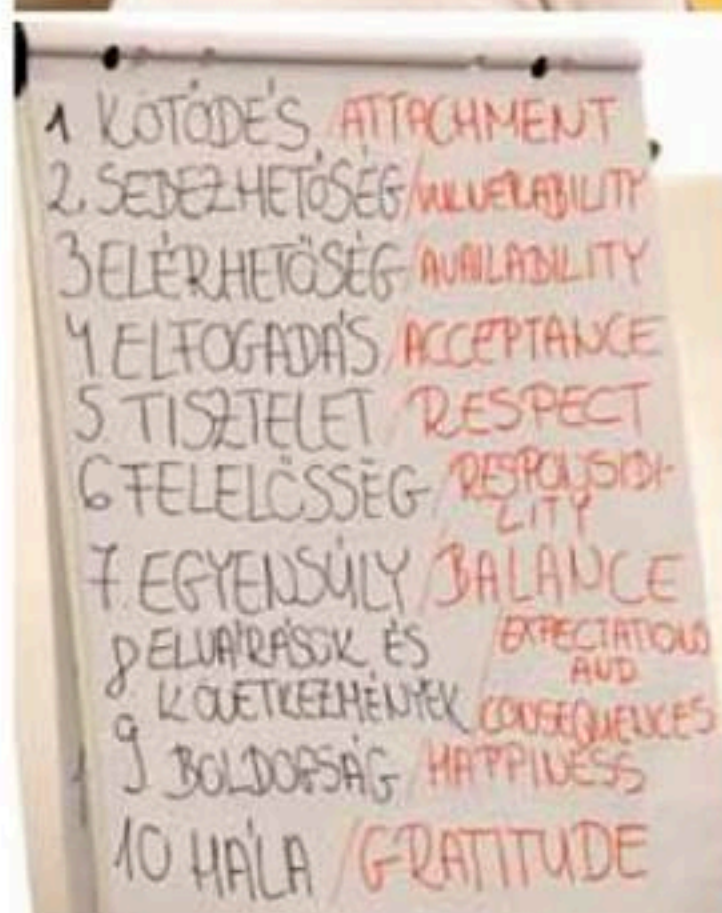 1 KÖTŐDÉS /ATTACHMENT
2. SEBEZHETŐSÉG/VULNERABILITY
3 ELÉRHETŐSÉG/AVAILABILITY
4 ELFOGADÁS/ACCEPTANCE
5 TISZTELET/RESPECT
6 FELELŐSSÉG/RESPONSIBI-
LITY
7. EGYENSÚLY/BALANCE
8 ELVÁRÁSOK ÉS /EXPECTATIONS
AND
KÖVETKEZMÉNYEK CONSEQUENCES
9 BOLDOGSÁG/HAPPINESS
10 HÁLA/GRATITUDE